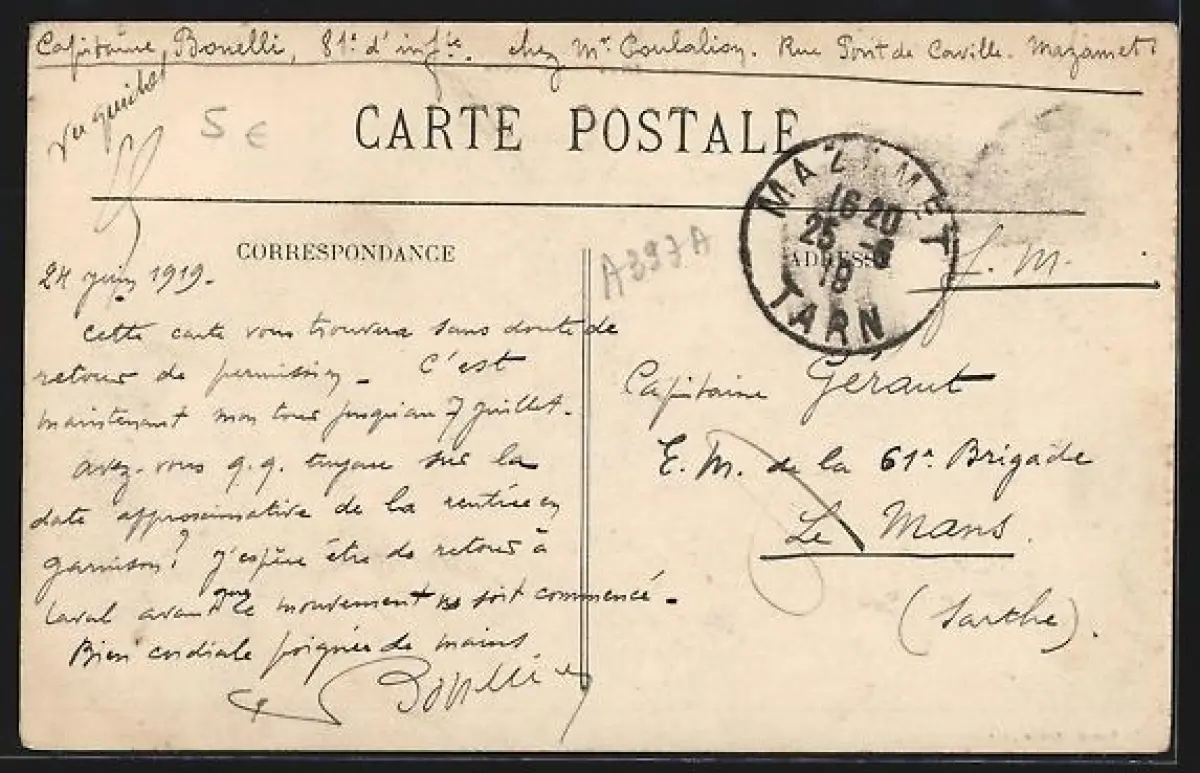 Capitaine Bonelli, 81e d'infie. chez Mr Coulalion. Rue Pont de Caville. Mazamet
5 €
CARTE POSTALE
MAZAMET
16 20
25 -6
19
TARN
CORRESPONDANCE
ADRESSE
A397A
F. M.
24 juin 1919.
Cette carte vous trouvera sans doute de
retour de permission. C'est
maintenant mon tour jusqu'au 7 juillet.
Avez-vous q.q. tuyau sur la
date approximative de la rentrée en
garnison? J'espère être de retour à
Laval avant que le mouvement ne soit commencé.
Bien cordiale poignée de mains
Bonelli
Capitaine Géraut
E. M. de la 61e Brigade
Le Mans.
(Sarthe).